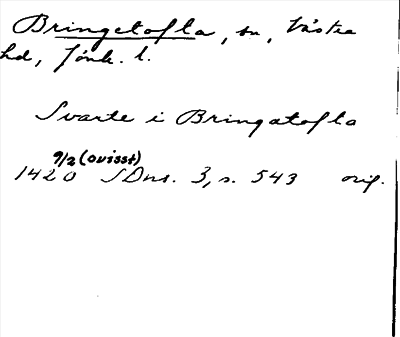 Bringetofta, sn, Västra
hd, Jönk. l.
Svarte i Bringatofta
9/2 (ovisst)
1420 SDns. 3, s. 543 orig.